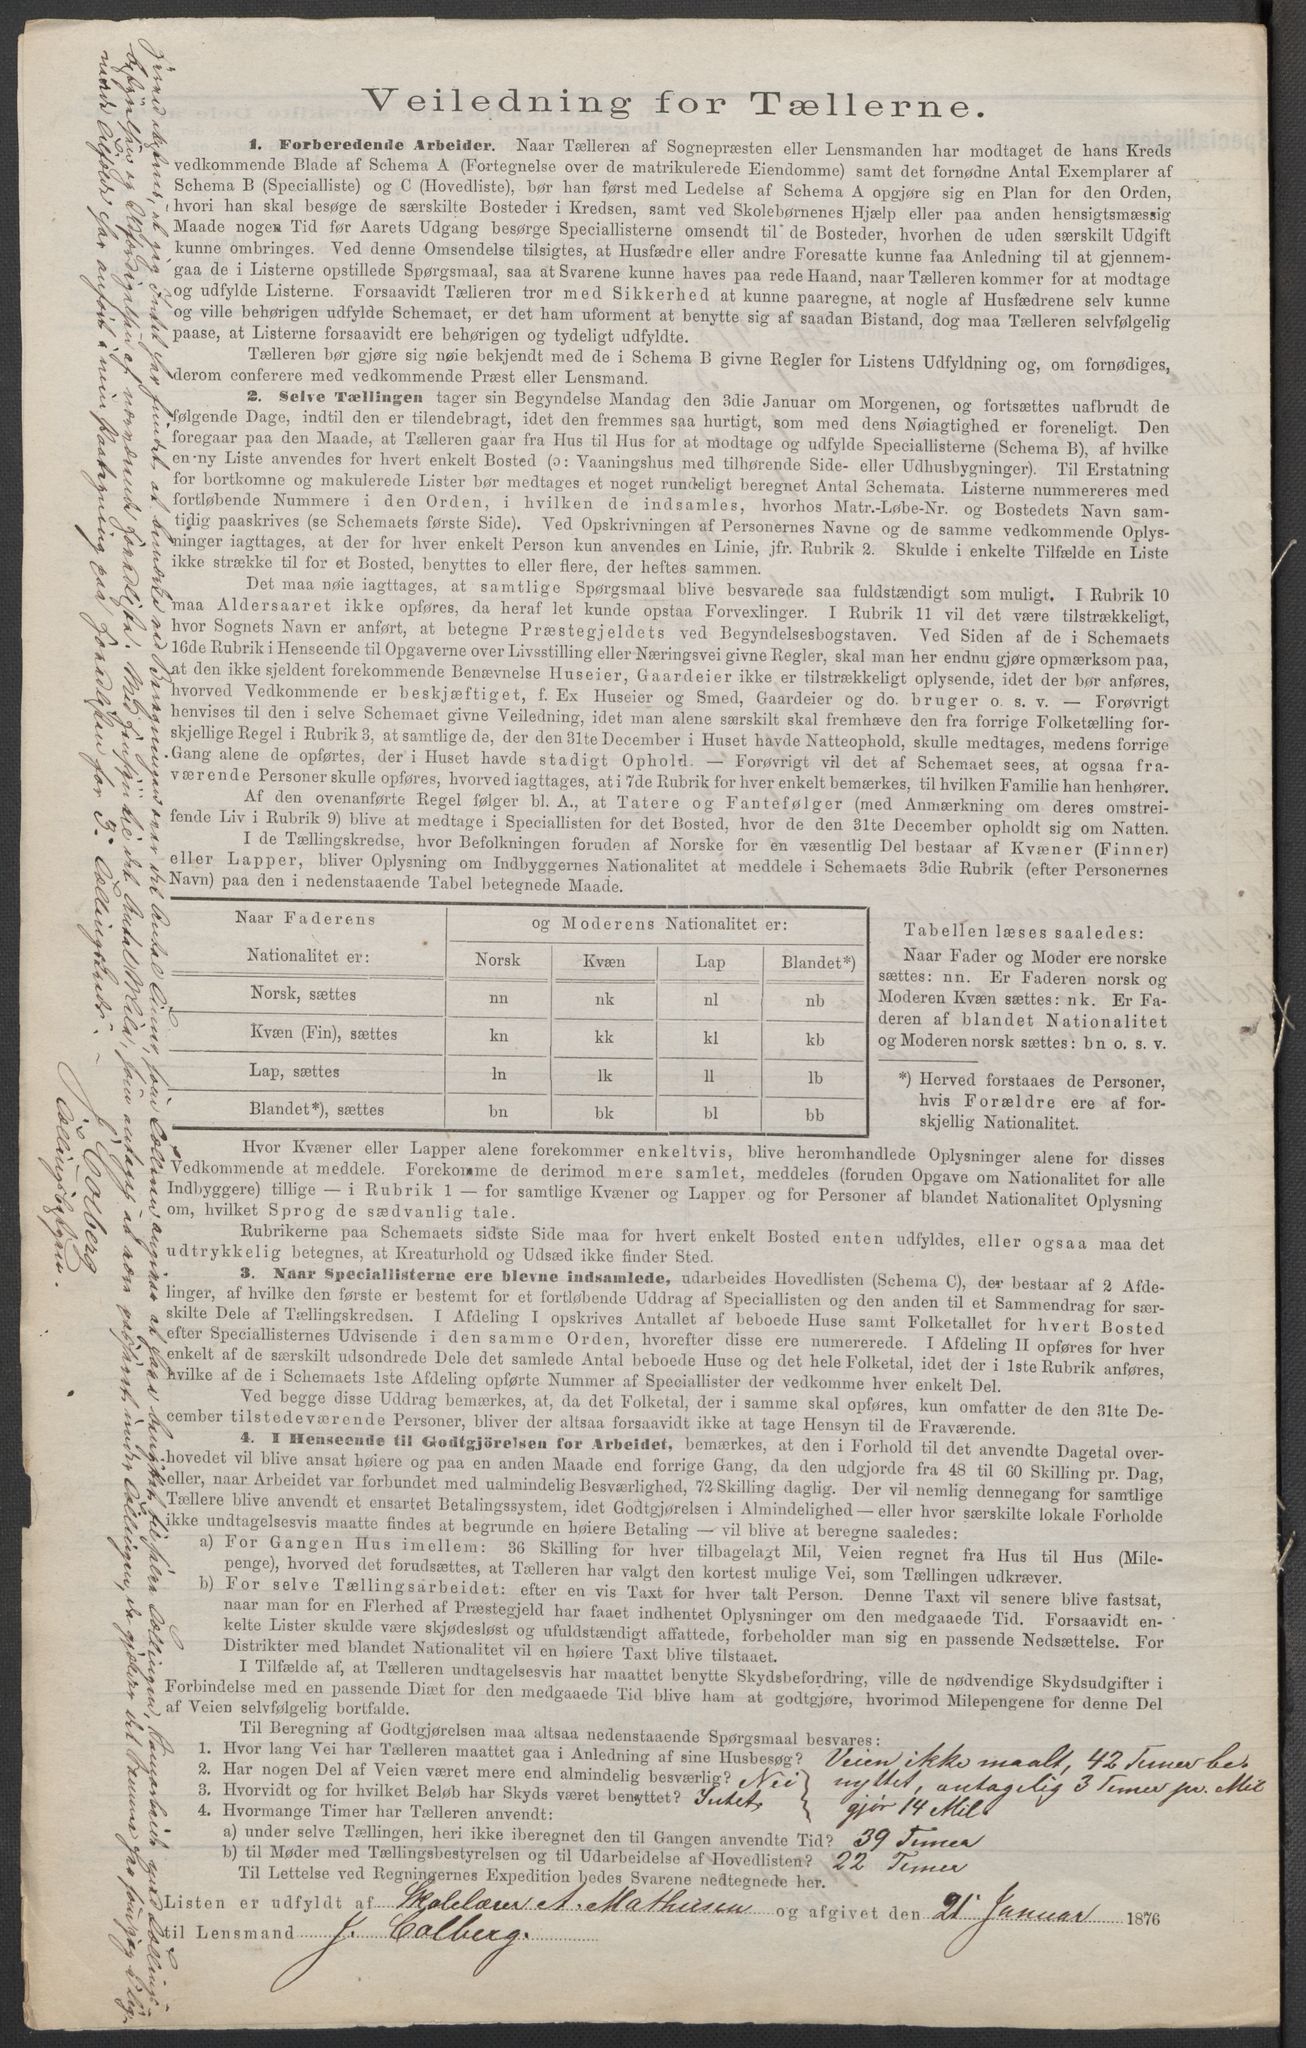 Veiledning for Tællerne.
1. Forberedende Arbeider. Naar Tælleren af Sognepræsten eller Lensmanden har modtaget de hans Kreds
vedkommende Blade af Schema A (Fortegnelse over de matrikulerede Eiendomme) samt det fornødne Antal Exemplarer af
Schema B (Specialliste) og C (Hovedliste), bør han først med Ledelse af Schema A opgjøre sig en Plan for den Orden,
hvori han skal besøge de særskilte Bosteder i Kredsen, samt ved Skolebørnenes Hjælp eller paa anden hensigtsmæssig
Maade nogen Tid før Aarets Udgang besørge Speciallisterne omsendt til de Bosteder, hvorhen de uden særskilt Udgift
kunne ombringes. Ved denne Omsendelse tilsigtes, at Husfædre eller andre Foresatte kunne faa Anledning til at gjennem-
gaa de i Listerne opstillede Spørgsmaal, saa at Svarene kunne haves paa rede Haand, naar Tælleren kommer for at modtage
og udfylde Listerne. Forsaavidt Tælleren tror med Sikkerhed at kunne paaregne, at nogle af Husfædrene selv kunne
og ville behørigen udfylde Schemaet, er det ham uforment at benytte sig af saadan Bistand, dog maa Tælleren selvfølgelig
paase, at Listerne forsaavidt ere behørigen og tydeligt udfyldte.
Tælleren bør gjøre sig nøie bekjendt med de i Schema B givne Regler for Listens Udfyldning og, om fornødiges,
derom conferere med vedkommende Præst eller Lensmand.
2. Selve Tællingen tager sin Begyndelse Mandag den 3die Januar om Morgenen, og fortsættes uafbrudt de
følgende Dage, indtil den er tilendebragt, idet den fremmes saa hurtigt, som med dens Nøiagtighed er foreneligt. Den
foregaar paa den Maade, at Tælleren gaar fra Hus til Hus for at modtage og udfylde Speciallisterne (Schema B), af hvilke
en ny Liste anvendes for hvert enkelt Bosted (ɔ: Vaaningshus med tilhørende Side- eller Udhusbygninger). Til Erstatning
for bortkomne og makulerede Lister bør medtages et noget rundeligt beregnet Antal Schemata. Listerne nummereres med
fortløbende Nummere i den Orden, i hvilken de indsamles, hvorhos Matr.-Løbe-Nr. og Bostedets Navn sam-
tidig paaskrives (se Schemaets første Side). Ved Opskrivningen af Personernes Navne og de samme vedkommende Oplys-
ninger iagttages, at der for hver enkelt Person kun anvendes en Linie, jfr. Rubrik 2. Skulde i enkelte Tilfælde en Liste
ikke strække til for et Bosted, benyttes to eller flere, der heftes sammen.
Det maa nøie iagttages, at samtlige Spørgsmaal blive besvarede saa fuldstændigt som muligt. I Rubrik 10
maa Aldersaaret ikke opføres, da heraf let kunde opstaa Forvexlinger. I Rubrik 11 vil det være tilstrækkeligt,
hvor Sognets Navn er anført, at betegne Præstegjeldets ved Begyndelsesbogstaven. Ved Siden af de i Schemaets
16de Rubrik i Henseende til Opgaverne over Livsstilling eller Næringsvei givne Regler, skal man her endnu gjøre opmærksom paa,
at den ikke sjeldent forekommende Benævnelse Huseier, Gaardeier ikke er tilstrækkeligt oplysende, idet der bør anføres,
hvorved Vedkommende er beskjæftiget, f. Ex Huseier og Smed, Gaardeier og do. bruger o. s. v. — Forøvrigt
henvises til den i selve Schemaet givne Veiledning, idet man alene særskilt skal fremhæve den fra forrige Folketælling for-
skjellige Regel i Rubrik 3, at samtlige de, der den 31te December i Huset havde Natteophold, skulle medtages, medens forrige
Gang alene de opførtes, der i Huset havde stadigt Ophold. — Forøvrigt vil det af Schemaet sees, at ogsaa fra-
værende Personer skulle opføres, hvorved iagttages, at i 7de Rubrik for hver enkelt bemærkes, til hvilken Familie han henhører.
Af den ovenanførte Regel følger bl. A., at Tatere og Fantefølger (med Anmærkning om deres omstrei-
fende Liv i Rubrik 9) blive at medtage i Speciallisten for det Bosted, hvor de den 31te December opholdt sig om Natten.
I de Tællingskredse, hvor Befolkningen foruden af Norske for en væsentlig Del bestaar af Kvæner (Finner)
eller Lapper, bliver Oplysning om Indbyggernes Nationalitet at meddele i Schemaets 3die Rubrik (efter Personernes
Navn) paa den i nedenstaaende Tabel betegnede Maade.
Naar Faderens og Moderens Nationalitet er:
Nationalitet er: Norsk Kvæn Lap Blandet*)
Norsk, sættes nn nk nl nb
Kvæn (Fin), sættes kn kk kl kb
Lap, sættes ln lk ll lb
Blandet*), sættes bn bk bl bb
Tabellen læses saaledes:
Naar Fader og Moder ere norske
sættes: nn. Er Faderen norsk og
Moderen Kvæn sættes: nk. Er Fa-
deren af blandet Nationalitet
og Moderen norsk sættes: bn o. s. v.
*) Herved forstaaes de Personer,
hvis Forældre ere af for-
skjellig Nationalitet.
Hvor Kvæner eller Lapper alene forekommer enkeltvis, blive heromhandlede Oplysninger alene for disses
Vedkommende at meddele. Forekomme de derimod mere samlet, meddeles (foruden Opgave om Nationalitet for alle
Indbyggere) tillige — i Rubrik 1 — for samtlige Kvæner og Lapper og for Personer af blandet Nationalitet Oplysning
om, hvilket Sprog de sædvanlig tale.
Rubrikerne paa Schemaets sidste Side maa for hvert enkelt Bosted enten udfyldes, eller ogsaa maa det
udtrykkelig betegnes, at Kreaturhold og Udsæd ikke finder Sted.
3. Naar Speciallisterne ere blevne indsamlede, udarbeides Hovedlisten (Schema C), der bestaar af 2 Afde-
linger, af hvilke den første er bestemt for et fortløbende Uddrag af Speciallisten og den anden til et Sammendrag for sær-
skilte Dele af Tællingskredsen. I Afdeling I opskrives Antallet af beboede Huse samt Folketallet for hvert Bosted
efter Speciallisternes Udvisende i den samme Orden, hvorefter disse ere numererede. I Afdeling II opføres for hver
enkelt af de særskilt udsondrede Dele det samlede Antal beboede Huse og det hele Folketal, idet der i 1ste Rubrik anføres,
hvilke af de i Schemaets 1ste Afdeling opførte Nummer af Speciallister der vedkomme hver enkelt Del.
Ved begge disse Uddrag bemærkes, at, da det Folketal, der i samme skal opføres, kun omfatter de den 31te De-
cember tilstedeværende Personer, bliver der altsaa forsaavidt ikke at tage Hensyn til de Fraværende.
4. I Henseende til Godtgjörelsen for Arbeidet, bemærkes, at den i Forhold til det anvendte Dagetal over-
hovedet vil blive ansat høiere og paa en anden Maade end forrige Gang, da den udgjorde fra 48 til 60 Skilling pr. Dag,
eller, naar Arbeidet var forbundet med ualmindelig Besværlighed, 72 Skilling daglig. Der vil nemlig dennegang for samtlige
Tællere blive anvendt et ensartet Betalingssystem, idet Godtgjørelsen i Almindelighed — eller hvor særskilte lokale Forholde
ikke undtagelsesvis maatte findes at begrunde en høiere Betaling — vil blive at beregne saaledes:
a) For Gangen Hus imellem: 36 Skilling for hver tilbagelagt Mil, Veien regnet fra Hus til Hus (Mile-
penge), hvorved det forudsættes, at Tælleren har valgt den kortest mulige Vei, som Tællingen udkræver.
b) For selve Tællingsarbeidet: efter en vis Taxt for hver talt Person. Denne Taxt vil senere blive fastsat,
naar man for en Flerhed af Præstegjeld har faaet indhentet Oplysninger om den medgaaede Tid. Forsaavidt en-
kelte Lister skulde være skjødesløst og ufuldstændigt affattede, forbeholder man sig en passende Nedsættelse. For
Distrikter med blandet Nationalitet vil en høiere Taxt blive tilstaaet.
I Tilfælde af, at Tælleren undtagelsesvis har maattet benytte Skydsbefordring, ville de nødvendige Skydsudgifter i
Forbindelse med en passende Diæt for den medgaaede Tid blive ham at godtgjøre, hvorimod Milepengene for denne Del
af Veien selvfølgelig bortfalde.
Til Beregning af Godtgjørelsen maa altsaa nedenstaaende Spørgsmaal besvares:
1. Hvor lang Vei har Tælleren maattet gaa i Anledning af sine Husbesøg? Veien ikke maalt, 42 Timer be
2. Har nogen Del af Veien været mere end almindelig besværlig? Nei nyttet, antagelig 3 Timer pr. Mil
3. Hvorvidt og for hvilket Beløb har Skyds været benyttet? Intet gjør 14 Mil
4. Hvormange Timer har Tælleren anvendt:
a) under selve Tællingen, heri ikke iberegnet den til Gangen anvendte Tid? 39 Timer
b) til Møder med Tællingsbestyrelsen og til Udarbeidelse af Hovedlisten? 22 Timer
Til Lettelse ved Regningernes Expedition bedes Svarene nedtegnede her.
Listen er udfyldt af Skolelærer A. Mathisen og afgivet den 21 Januar 1876
til Lensmand J. Colberg.
J Colberg